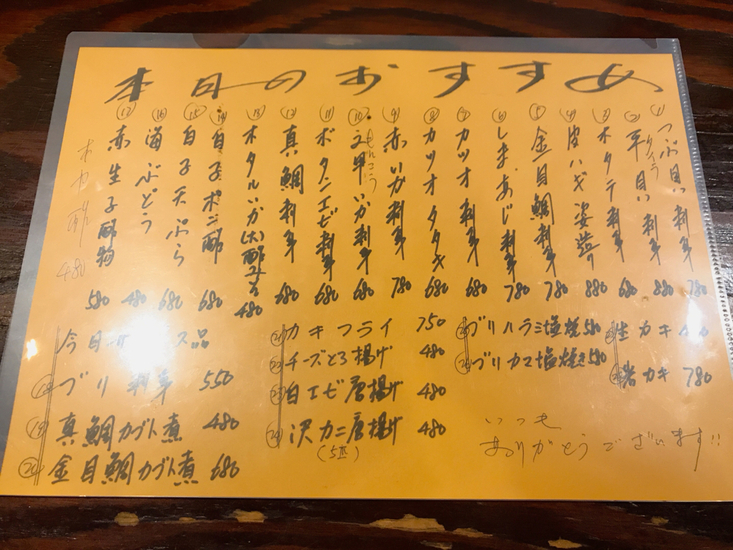 本日のおすすめ
① つぶ貝刺身 780
② 平貝刺身 880
タイラ
③ ホタテ刺身 680
④ 皮ハギ姿造り 880
⑤ 金目鯛刺身 780
⑥ しまあじ刺身 780
⑦ カツオ刺身 680
⑧ カツオタタキ 680
⑨ 赤いか刺身 780
⑩ 文甲いか刺身 680
もんこう
⑪ ボタンエビ刺身 680
⑫ 真鯛刺身 680
⑬ ホタルいか(大)酢みそ 480
⑭ 白子ポン酢 680
⑮ 白子天ぷら 680
⑯ 海ぶどう 480
⑰ 赤生子酢物 580
480
生カキ
岩カキ 780
ブリハラミ塩焼 580
ブリカマ塩焼き 580
カキフライ 750
チーズとろ揚げ 480
白エビ唐揚げ 480
沢カニ唐揚げ 480
(5匹)
今日の
ブリ刺身 550
⑲ 真鯛カブト煮 480
⑳ 金目鯛カブト煮 680
いつも
ありがとうございます!!